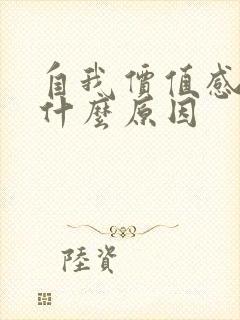 自我價值感
什麼原因
陸資